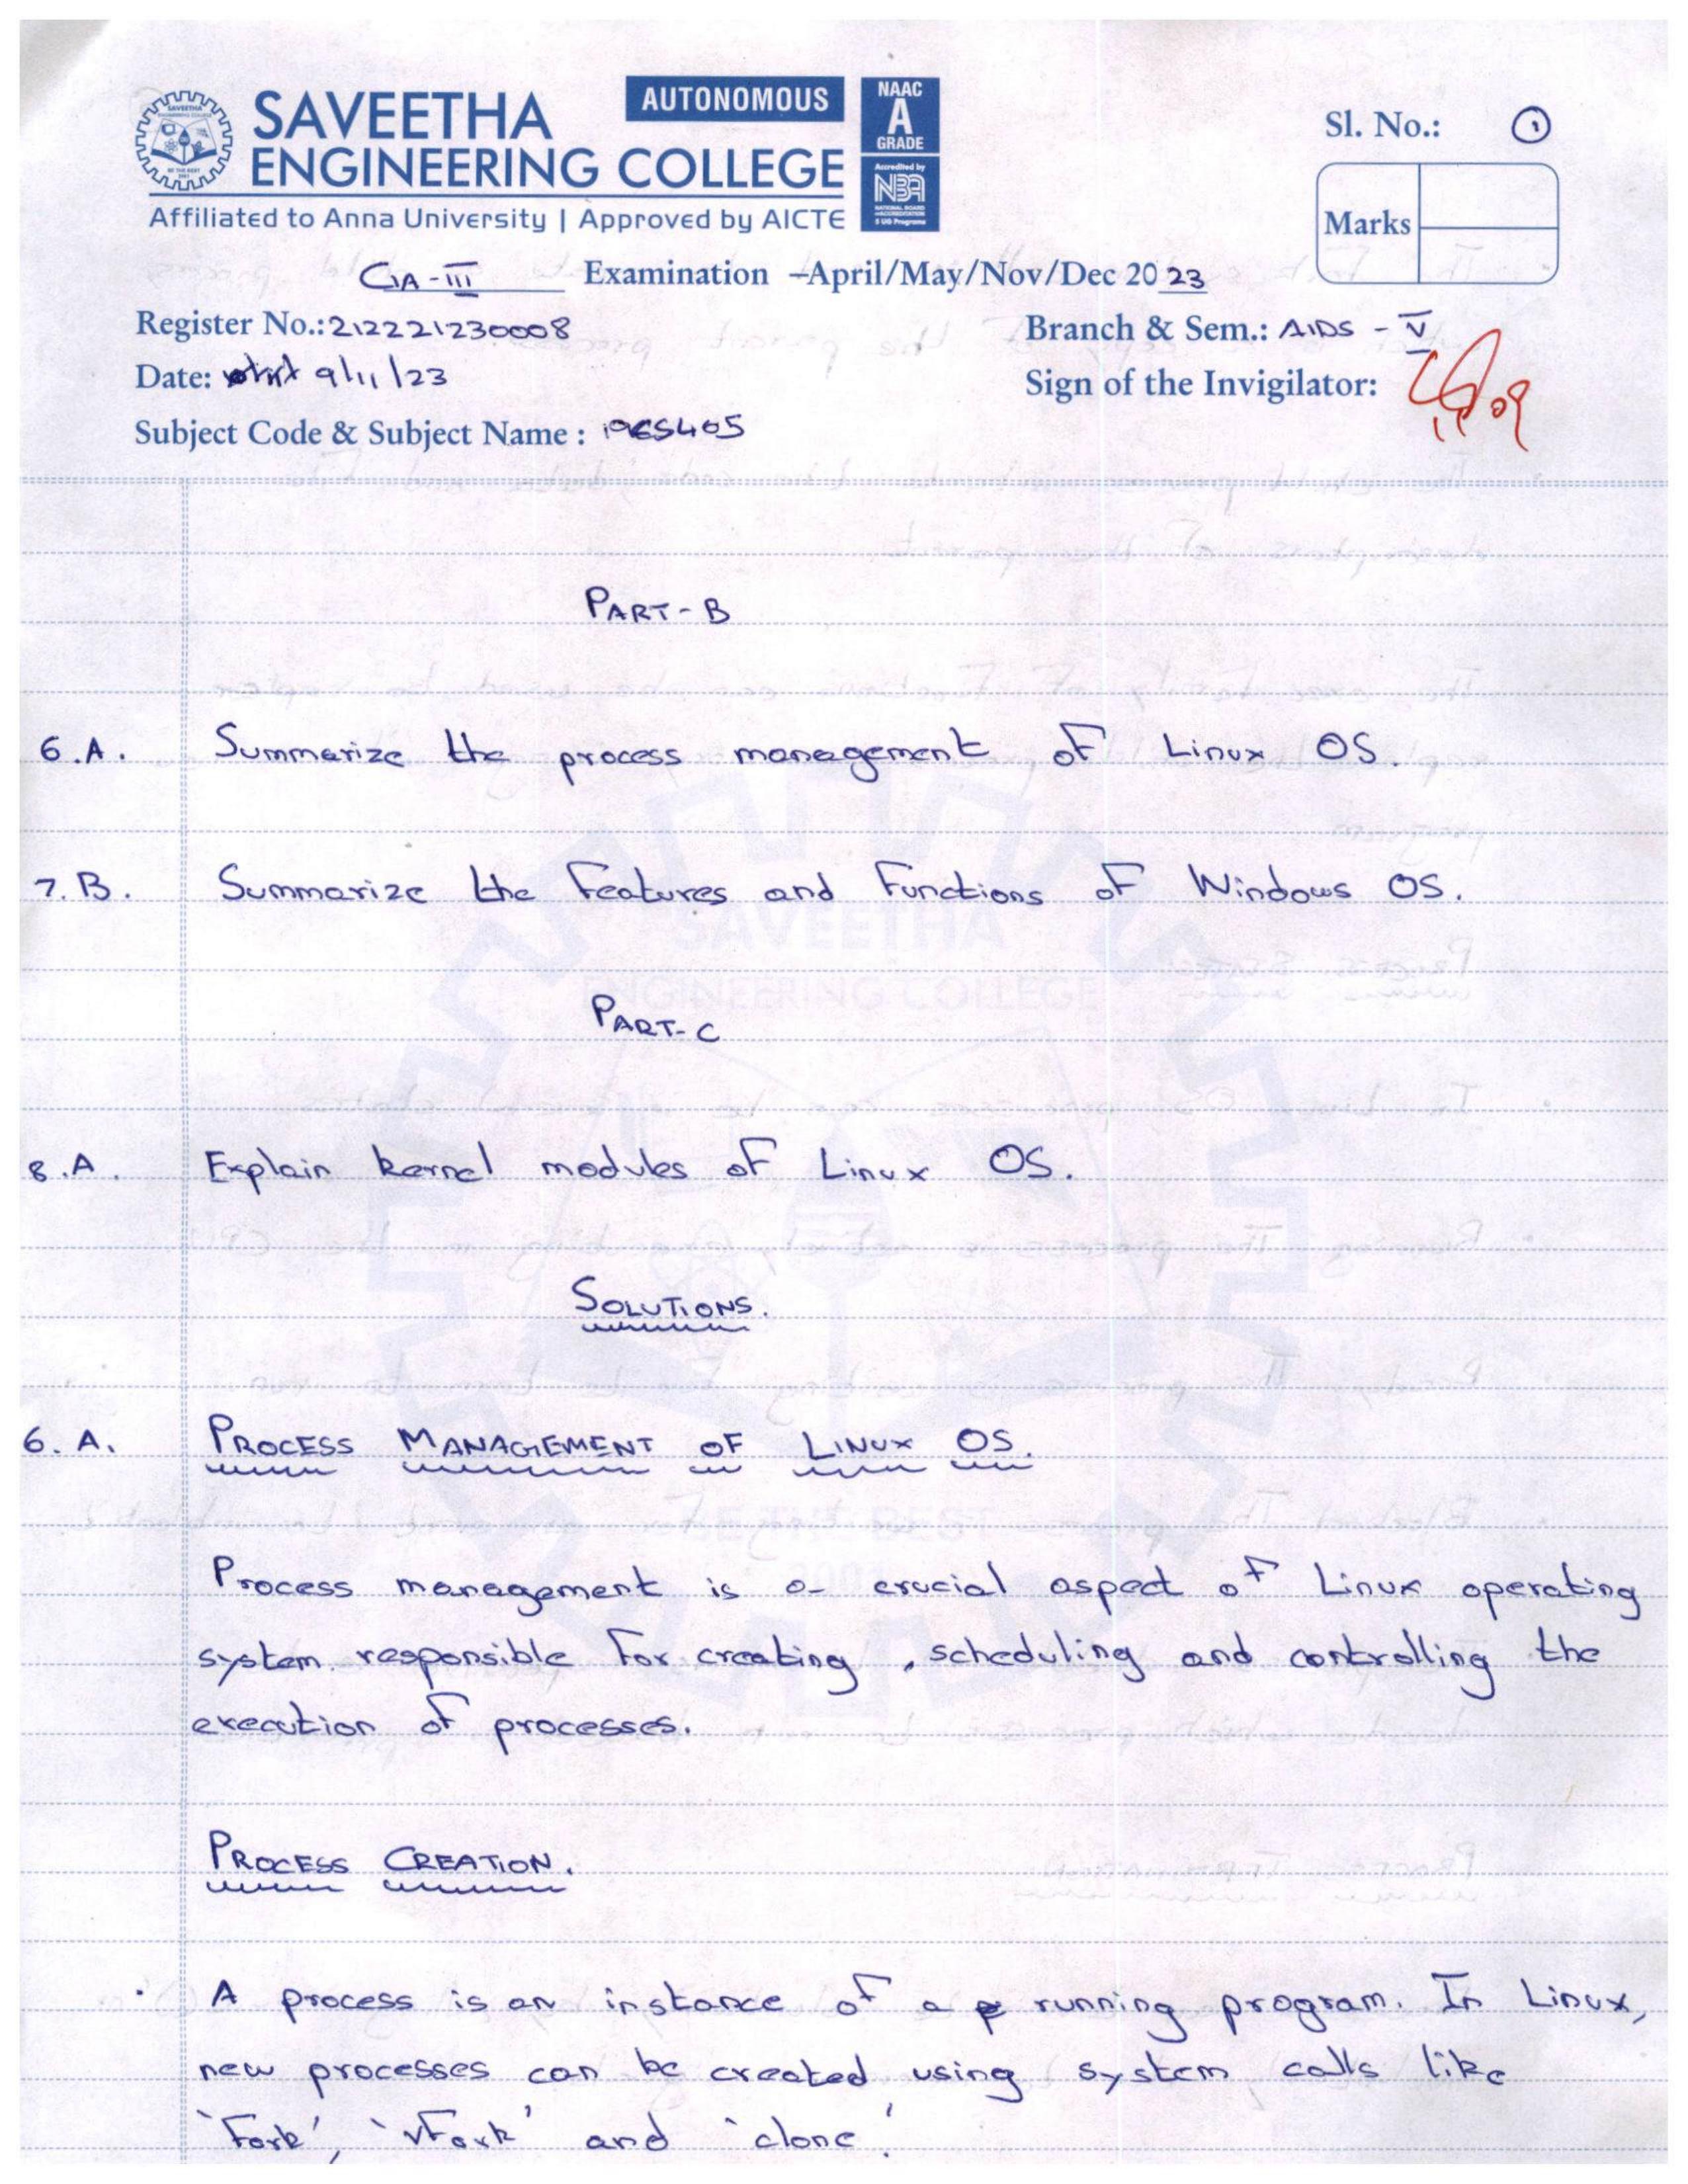 SAVEETHA
ENGINEERING COLLEGE
AUTONOMOUS
NAAC
A
GRADE
Accredited by
NBA
NATIONAL BOARD
of ACCREDITATION
5 UG Programs
Affiliated to Anna University | Approved by AICTE
Sl. No.: 1
Marks
CIA-III Examination –April/May/Nov/Dec 2023
Register No.: 212221230008
Branch & Sem.: AIDS - V
Date: 9/11/23
Sign of the Invigilator:
Subject Code & Subject Name : 19CS405
PART-B
6.A. Summarize the process management of Linux OS.
7.B. Summarize the features and functions of Windows OS.
SAVEETHA
ENGINEERING COLLEGE
PART-C
8.A. Explain kernel modules of Linux OS.
SOLUTIONS.
6.A. PROCESS MANAGEMENT OF LINUX OS.
BE THE BEST
2001
Process management is a crucial aspect of Linux operating
system responsible for creating, scheduling and controlling the
execution of processes.
PROCESS CREATION.
· A process is an instance of a running program. In Linux,
new processes can be created using system calls like
`fork', `vfork' and `clone'.